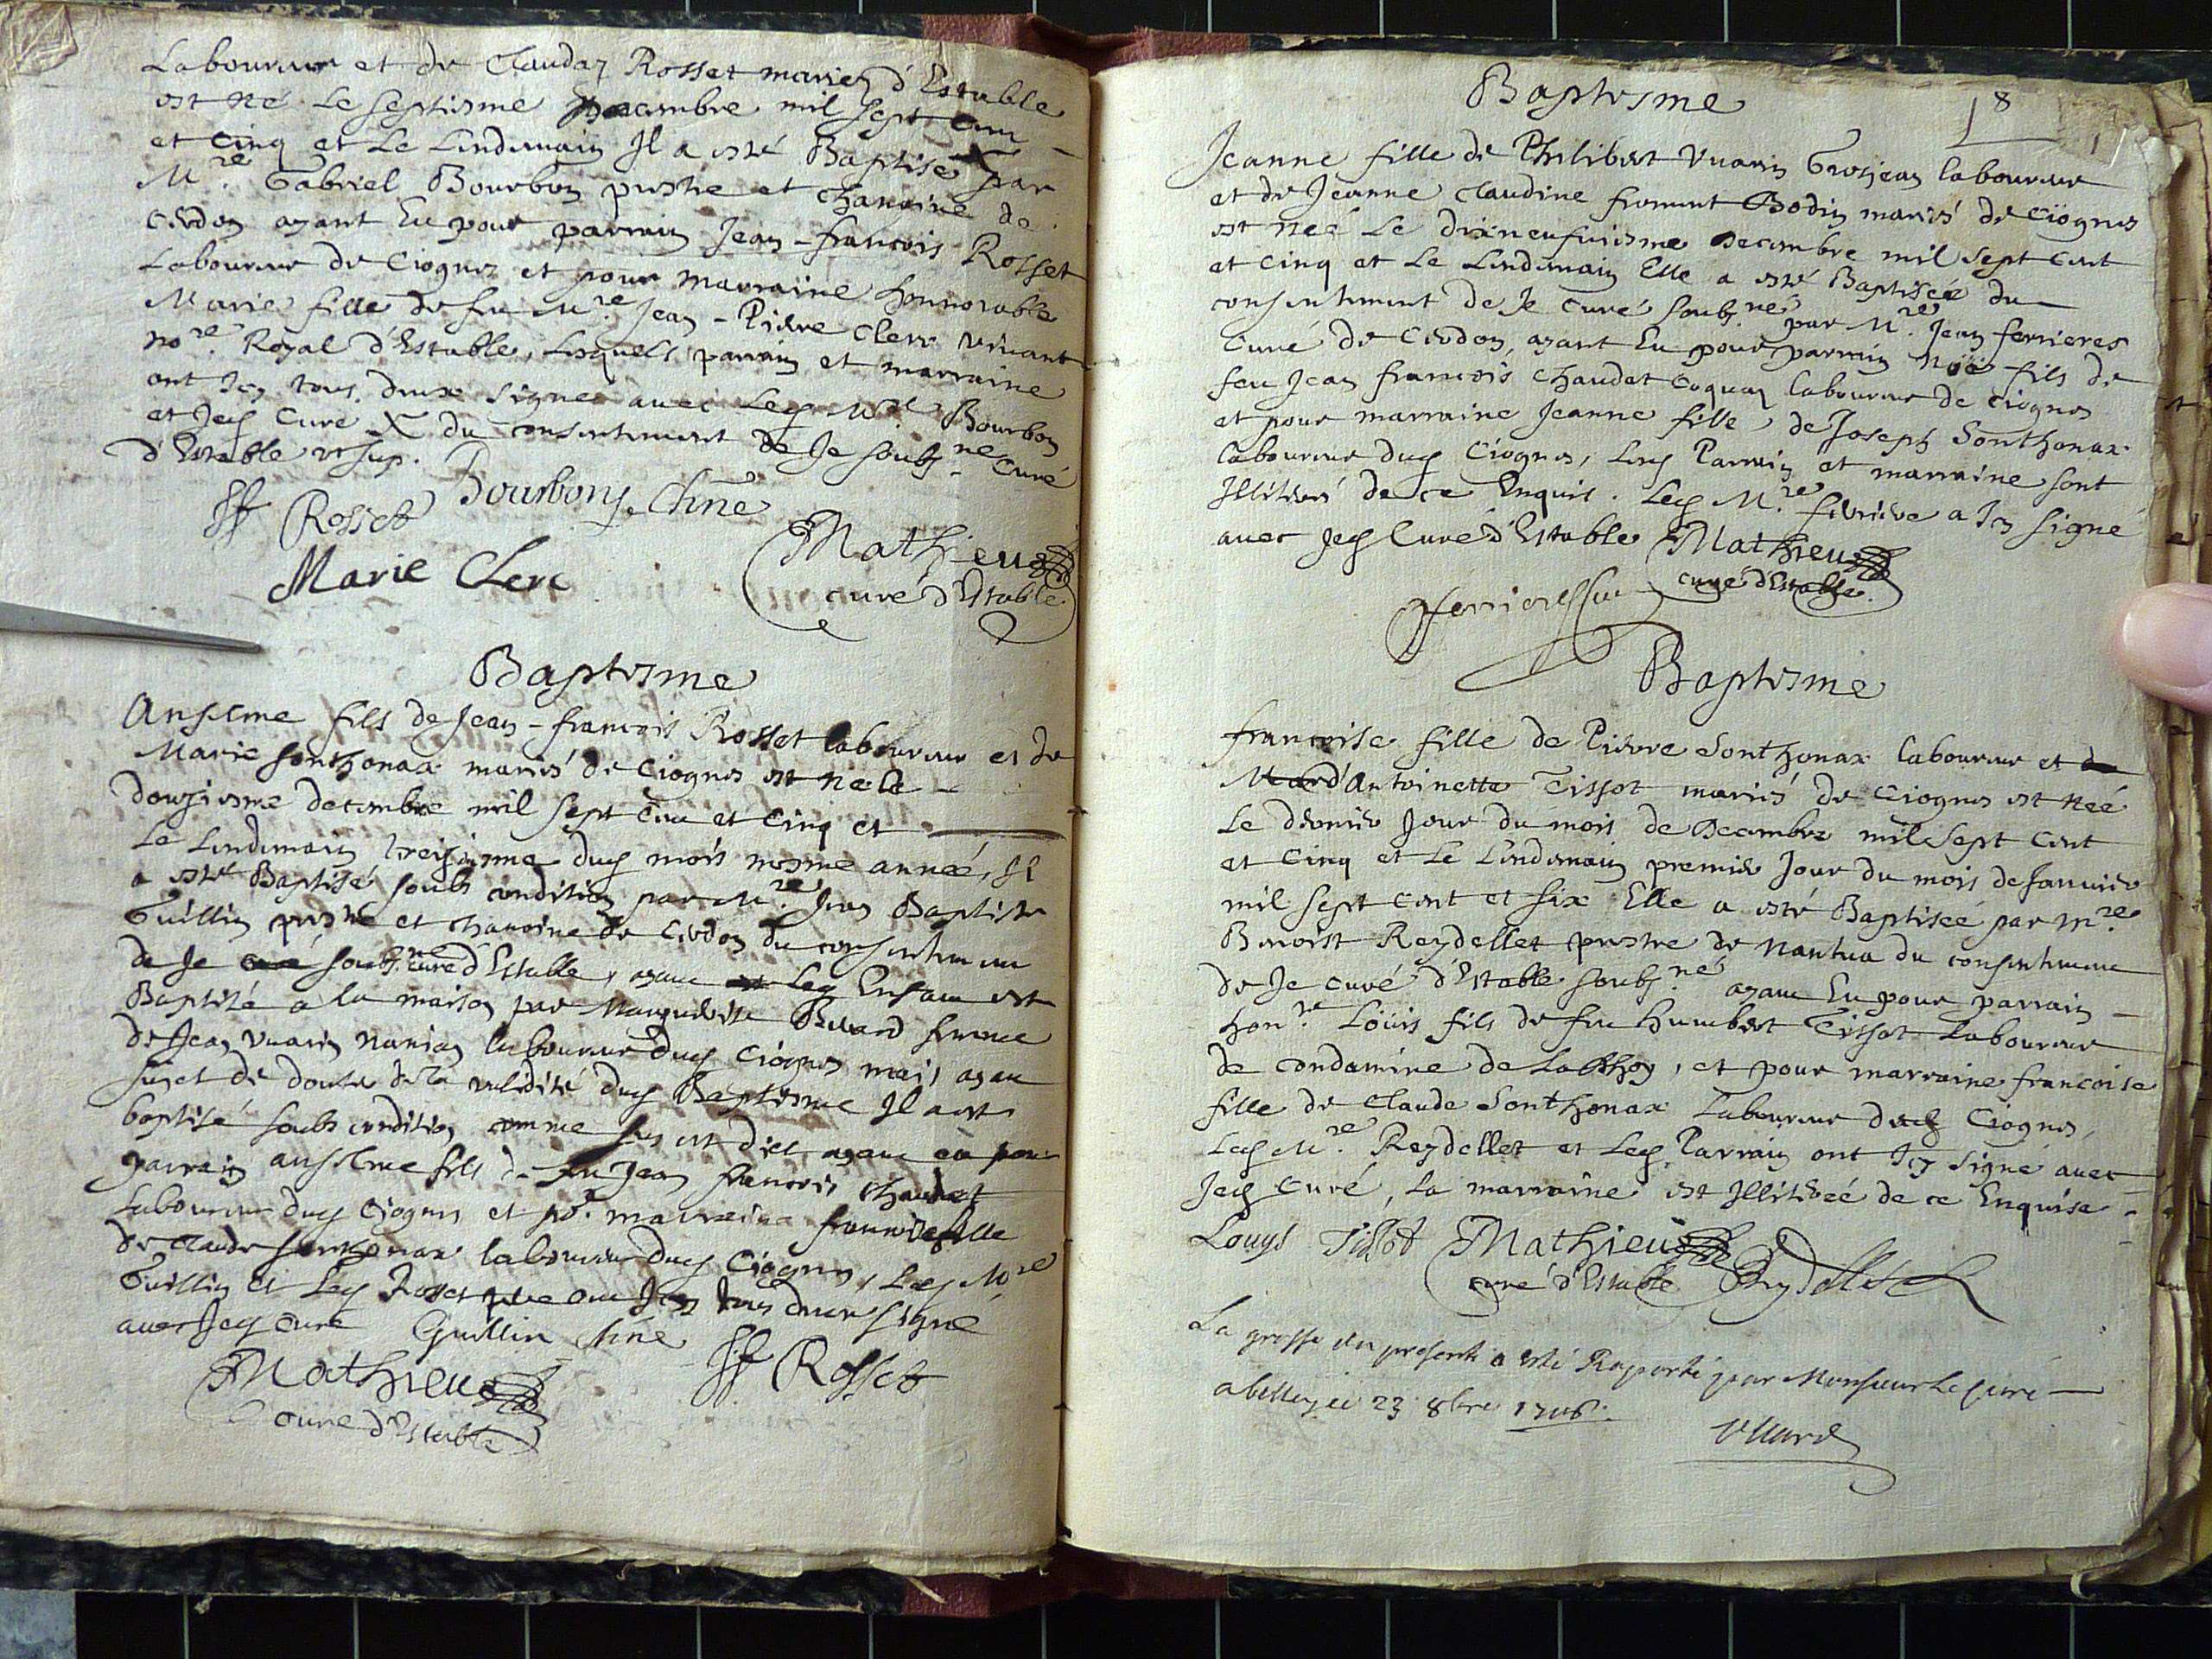 Laboureur et de Clauday Rosset mariez d'Estable
est né le septiesme decembre mil sept cens
et cinq et le lendemain Il a esté Baptisé X par
M.re Gabriel Bourbon prestre et chanoine de
Cerdon ayant eu pour parrain Jean-francois Rosset
Laboureur de Ciognes et pour marraine honnorable
Marie fille de feu M.re Jean-Pierre Clerc vivant
no.re Royal d'Estable, lesquels parrain et marraine
ont Icy tous deux signes avec Led M.re Bourbon
et Jed Curé X du consentement de Je soubz.né Curé
d'Estable ut sup.
JF Rosset Bourbon Chne
Marie Clerc Mathieu
curé d'Estable
Baptesme
Anselme fils de Jean-francois Rosset laboureur et de
Marie Sonthonax mariés de Ciognes est né le
douziesme decembre mil sept cens et cinq et
Le Lendemain treiziesme dud mois mesme année, Il
a esté Baptisé soubs condition par M.re Jean Baptiste
Guillin prestre et chanoine de Cerdon du consentement
de Je curé soubz.né curé d'Estable, ayant Led Enfant esté
Baptisé a la maison par Marguerite Berard femme
de Jean Vuarin laboureur dud Ciognes mais ayant
sujet de douter de la validité dud Baptesme Il a esté
baptisé soubs condition comme sus est dict ayant eu pour
parrain anselme fils de feu Jean francois Chaudet
Laboureur dud Ciognes et po. marraine francoise fille
de Claude Sonthonax laboureur dud Ciognes, Led M.re
Guillin et Led Rosset pere ont Icy tous deux signé
avec Jed curé Guillin Chne
Mathieu JF Rosset
curé d'Estable
18
Baptesme
Jeanne fille de Philibert Vuarin Grosjean laboureur
et de Jeanne Claudine froment Bodin mariés de Ciognes
est neé Le dixneufuiesme decembre mil sept cent
et cinq et Le Lendemain Elle a esté Baptisée du
consentement de Je curé soubz.né par M.re Jean ferrieres
Curé de Cerdon, ayant Eu pour parrain fils de
feu Jean francois chaudet Coquaz laboureur de Ciognes
et pour marraine Jeanne fille de Joseph Sonthonax
laboureur dud Ciognes, Les Parrain et marraine sont
Illiterés de ce Enquis. Led M.re ferriere a Icy signé
avec Jed Curé d'Estable Mathieu
curé d'Estable
Ferrieres Curé
Baptesme
francoise fille de Pierre Sonthonax laboureur et de
Mar d'Antoinette Tissot mariés de Ciognes est neé
Le dernier Jour du mois de Decembre mil sept cent
et cinq et Le Lendemain premier Jour du mois de Janvier
mil sept cent et six Elle a esté Baptiseé par M.re
Benoist Reydellet prestre de Nantua du consentement
de Je curé d'Estable soubz.né ayant Eu pour parrain
hon.re Loüis fils de feu humbert Tissot Laboureur
de Condamine de La et pour marraine francoise
fille de Claude Sonthonax Laboureur dud Ciognes,
Led M.re Reydellet et Led Parrain ont Icy signé avec
Jed Curé, La marraine est Illitereé de ce Enquise
Louys Tissot Mathieu
curé d'Estable Reydellet
La grosse du present a esté Raporté par Monsieur Le Curé
a belley ce 23 8bre 1706.
Vuard